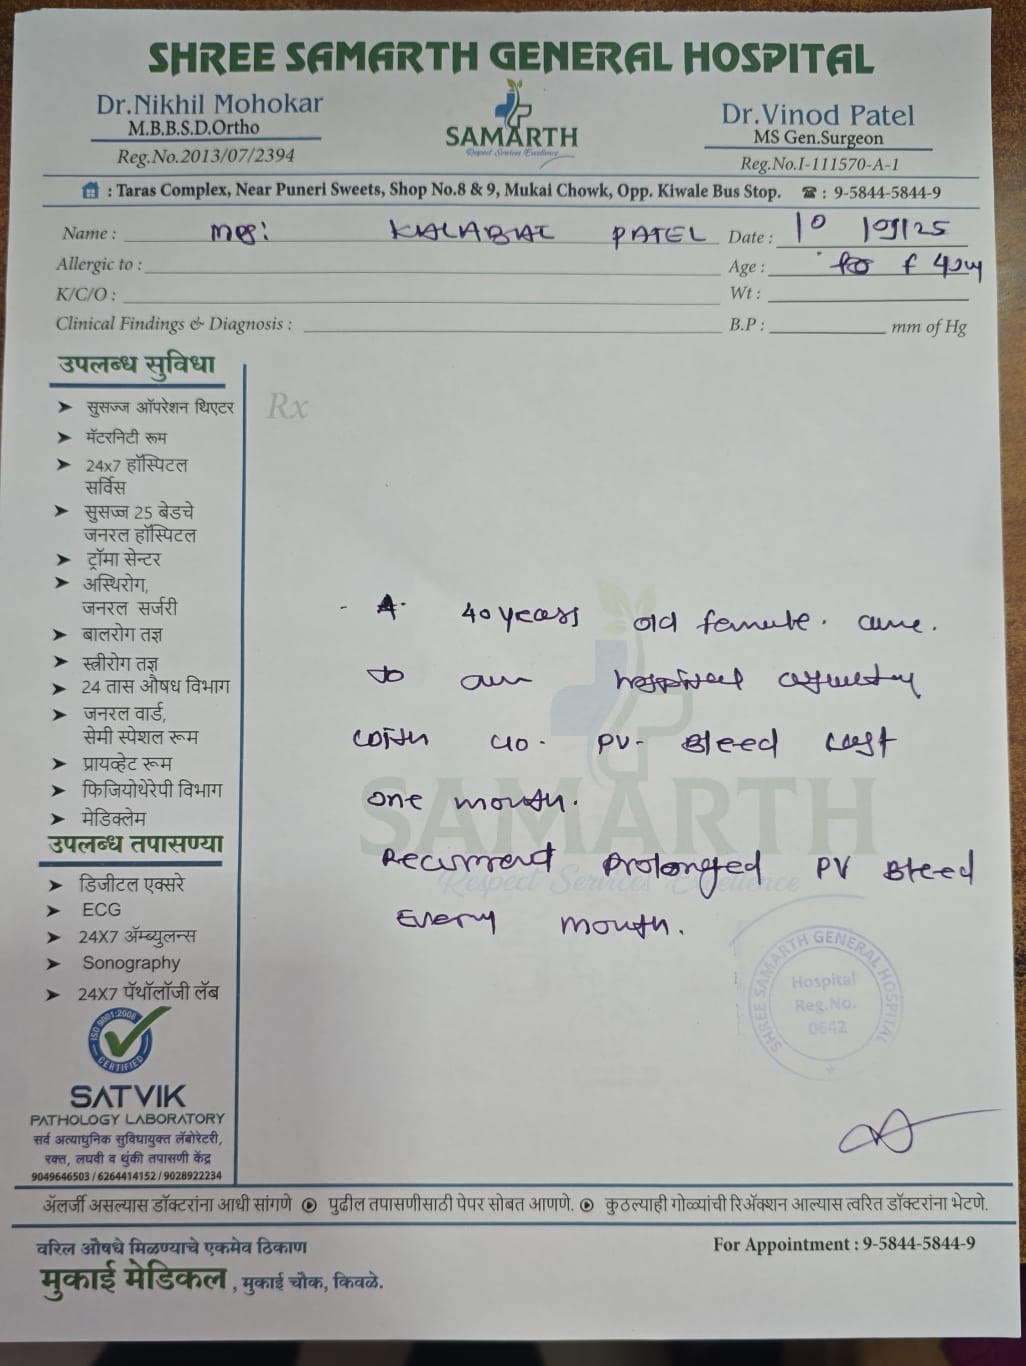 SHREE SAMARTH GENERAL HOSPITAL
Dr.Nikhil Mohokar
M.B.B.S.D.Ortho
Reg.No.2013/07/2394
SAMARTH
Respect Services Excellence
Dr.Vinod Patel
MS Gen.Surgeon
Reg.No.I-111570-A-1
: Taras Complex, Near Puneri Sweets, Shop No.8 & 9, Mukai Chowk, Opp. Kiwale Bus Stop. ☎ : 9-5844-5844-9
Name : KALABAI PATEL Date : 10/09/25
Allergic to : Age : F 40y
K/C/O : Wt :
Clinical Findings & Diagnosis : B.P : mm of Hg
उपलब्ध सुविधा
➤ सुसज्ज ऑपरेशन थिएटर
➤ मॅटरनिटी रूम
➤ 24x7 हॉस्पिटल
सर्विस
➤ सुसज्ज 25 बेडचे
जनरल हॉस्पिटल
➤ ट्रॉमा सेन्टर
➤ अस्थिरोग,
जनरल सर्जरी
➤ बालरोग तज्ञ
➤ स्त्रीरोग तज्ञ
➤ 24 तास औषध विभाग
➤ जनरल वार्ड,
सेमी स्पेशल रूम
➤ प्रायव्हेट रूम
➤ फिजियोथेरेपी विभाग
➤ मेडिक्लेम
उपलब्ध तपासण्या
➤ डिजीटल एक्सरे
➤ ECG
➤ 24X7 ॲम्ब्युलन्स
➤ Sonography
➤ 24X7 पॅथॉलॉजी लॅब
ISO 9001:2008
CERTIFIED
SATVIK
PATHOLOGY LABORATORY
सर्व अत्याधुनिक सुविधायुक्त लॅबोरेटरी,
रक्त, लघवी व थुंकी तपासणी केंद्र
9049646503 / 6264414152 / 9028922234
Rx
A 40 years old female came
to our hospital
with c/o PV Bleed last
one month.
Recurrent Prolonged PV Bleed
Every month.
SAMARTH
Respect Services Excellence
SHREE SAMARTH GENERAL HOSPITAL
Hospital
Reg.No.
0642
ॲलर्जी असल्यास डॉक्टरांना आधी सांगणे ▶ पुढील तपासणीसाठी पेपर सोबत आणणे. ▶ कुठल्याही गोळ्यांची रिॲक्शन आल्यास त्वरित डॉक्टरांना भेटणे.
वरिल औषधे मिळण्याचे एकमेव ठिकाण
मुकाई मेडिकल , मुकाई चौक, किवळे.
For Appointment : 9-5844-5844-9